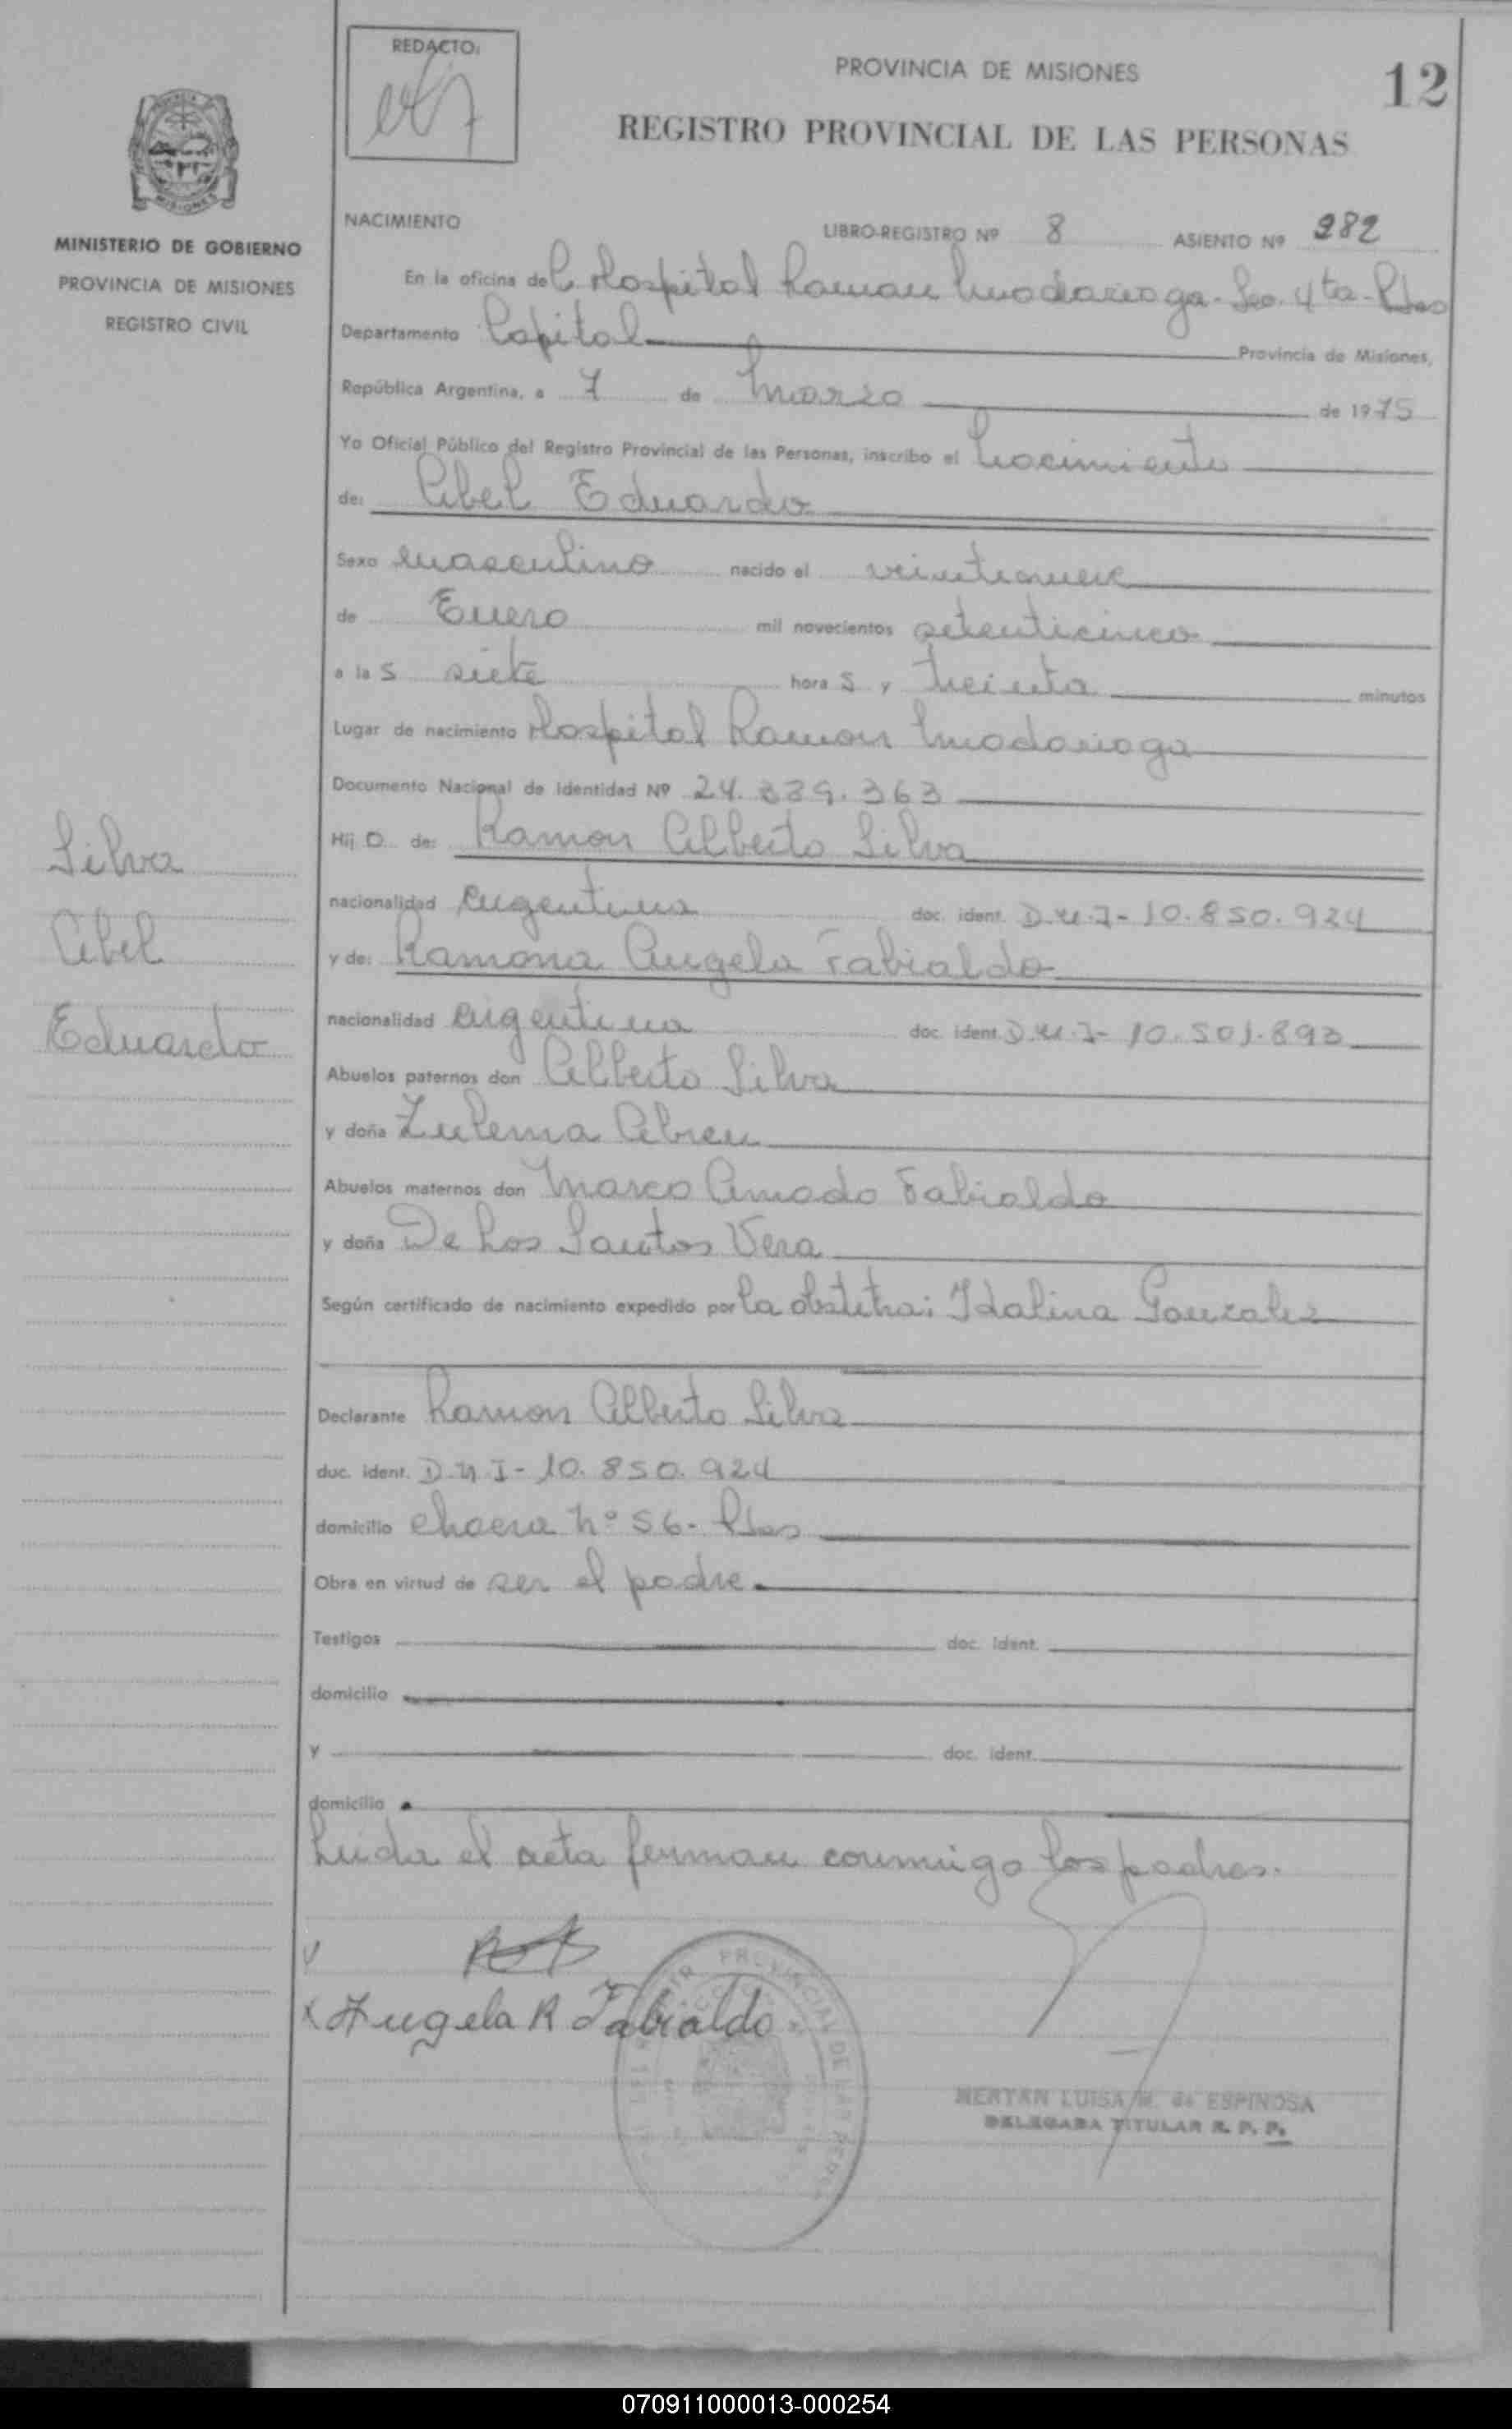 REDACTO:
PROVINCIA DE MISIONES
12
REGISTRO PROVINCIAL DE LAS PERSONAS
MISIONES
MINISTERIO DE GOBIERNO
PROVINCIA DE MISIONES
REGISTRO CIVIL
NACIMIENTO LIBRO-REGISTRO Nº 8 ASIENTO Nº 282
En la oficina del Hospital Ramon Madariaga - Sec. 4ta - Pdas
Departamento Capital Provincia de Misiones,
República Argentina, a 7 de Marzo de 1975
Yo Oficial Público del Registro Provincial de las Personas, inscribo el Nacimiento
de: Abel Eduardo
Sexo masculino nacido el veintinueve
de Enero mil novecientos setenticinco
a las siete horas y treinta minutos
Lugar de nacimiento Hospital Ramon Madariaga
Documento Nacional de Identidad Nº 24.339.363
Hijo de: Ramon Alberto Silva
nacionalidad argentina doc. ident. D.N.I- 10.850.924
y de: Ramona Angela Fabialdo
nacionalidad argentina doc. ident. D.N.I- 10.501.893
Abuelos paternos don Alberto Silva
y doña Zulema Abreu
Abuelos maternos don Marco Amado Fabialdo
y doña De Los Santos Vera
Según certificado de nacimiento expedido por la obstetra: Idalina Gonzalez
Declarante Ramon Alberto Silva
doc. ident. D.N.I- 10.850.924
domicilio chacra nº 56- Pdas
Obra en virtud de ser el padre
Testigos doc. ident.
domicilio
y doc. ident.
domicilio
Leida el acta ferman conmigo los padres.
Silva
Abel
Eduardo
x Angela R Fabialdo
MERTAN LUISA M. de ESPINOSA
DELEGADA TITULAR R. P. P.
070911000013-000254